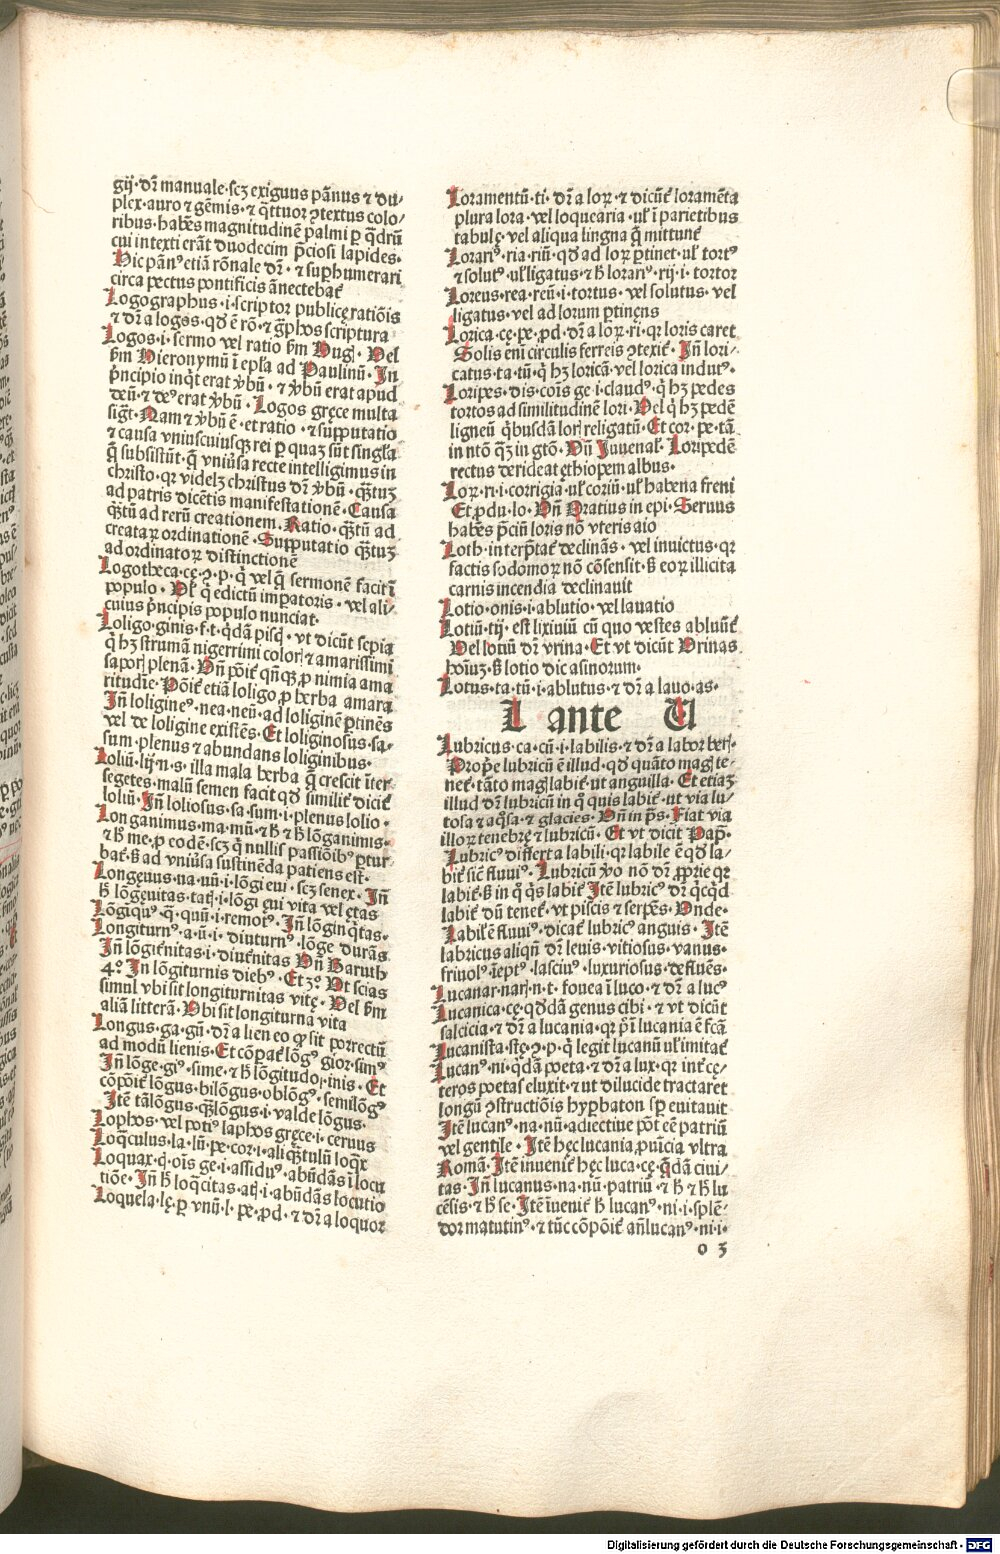 gij·dr̄ manuale·scȝ exiguus pãnus ⁊ du/
plex·auro ⁊ gẽmis·⁊ q̃ttuor ꝯtextus colo/
ribus·habẽs magnitudinẽ palmi ꝑ q̃drũ
cui intexti erãt duodecim p̃ciosi lapides·
Hic pãnꝰ etiã rõnale dr̄·⁊ suꝑhumerari
circa pectus pontificis ãnectebat᷑
Logographus·i·scriptor publicę ratiõis
⁊ dr̄ a logos·qđ ẽ rõ·⁊ g̃phos scriptura
Logos·i·sermo vel ratio ẜm Hug·Vel
ẜm Hieronymũ ĩ ep̃la ad Paulinũ·In
p̃ncipio inq̇t erat v̓bũ·⁊ v̓bũ erat apud
deũ·⁊ deꝰ erat v̓bũ·Logos gręce multa
sigt᷑·Nam ⁊ v̓bũ ẽ·et ratio·⁊ suꝑputatio
⁊ causa vniuscuiusqȝ rei ꝑ quaȝ sũt singl̓a
q̃ subsistũt·q̃ vniũsa recte intelligimus in
christo·qr videlȝ christus dr̄ v̓bũ·q̃tuȝ
ad patris dicẽtis manifestationẽ·Causa
q̃tũ ad rerũ creationem·Ratio·q̃tũ ad
creatarꝝ ordinationẽ·Suꝑputatio q̃tuȝ
ad ordinatorꝝ distinctionẽ
Logotheca·cę·ꝯ·p·q̇ vel q̃ sermonẽ facit ĩ
populo·Vl̓ q̇ edictũ imꝑatoris·vel ali/
cuius p̃ncipis populo nunciat·
Loligo·ginis·f·t·q̃dã pisc̃·vt dicũt sepia
q̃ hȝ strumã nigerrimi colorꝭ ⁊ amarissimi
saporꝭ plenã·Vñ põit᷑ qñqȝ ꝓ nimia ama
ritudĩe·Põit᷑ etiã loligo ꝓ herba amara
Iñ loligineꝰ·nea·neũ·ad loliginẽ ꝑtinẽs
vel de loligine existẽs·Et loliginosus·sa·
sum·plenus ⁊ abundans loliginibus·
Loliũ·lij·n·s·illa mala herba q̃ crescit ĩter
segetes·malũ semen facit qđ similit̓ dicit᷑
loliũ·Iñ loliosus·sa·sum·i·plenus lolio·
Longanimus·ma·mũ·⁊ h̓ ⁊ h̓ lõganimis·
⁊ h̓ me·ꝓ eodẽ·scȝ q̇ nullis passiõibꝰ ꝑtur
bat᷑·ß ad vniũsa sustinẽda patiens est·
Longęuus·na·uũ·i·lõgi eui·scȝ senex·Iñ
h̓ lõgęuitas·tatꝭ·i·lõgi ęui vita vel ętas
Lõgiqꝰ·q·quũ·i·remotꝰ·Iñ lõginq̇tas·
Longiturnꝰ·a·ũ·i·diuturnꝰ·lõge durãs
Iñ lõgit̓nitas·i·diut̓nitas Vñ Baruth
4°·In lõgiturnis diebꝰ·Et 3°·Vt scias
simul vbi sit longiturnitas vitę·Vel ẜm
aliã litterã·Vbi sit longiturna vita
Longus·ga·gũ·dr̄ a lien eo ꝙ sit porrectũ
ad modũ lienis·Et cõpat᷑ lõgꝰ gior·simꝰ
Iñ lõge·giꝰ·sime·⁊ h̓ lõgitudo·inis·Et
cõpõit᷑ lõgus·bilõgus·oblõgꝰ·semilõgꝰ
Itẽ tãlõgus·q̃lõgus·i·valde lõgus·
Lophos·vel potiꝰ laphos gręce·i·ceruus
Loq̃culus·la·lũ·pe·cor·i·aliq̃tulũ loq̃x
Loquax·q̇·oĩs ge·i·assiduꝰ·abũdãs ĩ locu
tiõe·Iñ h̓ loq̃citas·atꝭ·i·abũdãs locutio
Loquela·lę·ꝑ vnũ·l·pe·ꝓd·⁊ dr̄ a loquor
Loramentũ·ti·dr̄ a lorꝝ·⁊ dicũt᷑ loramẽta
plura lora·vel loquearia·ul̓ ĩ parietibus
tabulę·vel aliqua lingna q̃ mittunt᷑
Lorarꝰ·ria·riũ·qđ ad lorꝝ ꝑtinet·ul̓ tortꝰ
⁊ solutꝰ·ul̓ ligatus·⁊ h̓ lorarꝰ·rij·i·tortor
Loreus·rea·reũ·i·tortus·vel solutus·vel
ligatus·vel ad lorum ꝑtinẽns
Lorica·cę·pe·ꝓd·dr̄ a lorꝝ·ri·qr loris caret
Solis eni circulis ferreis ꝯtexit᷑·Iñ lori/
catus·ta·tũ·q̇ hȝ loricã·vel lorica indutꝰ·
Loripes·dis·coĩs ge·i·claudꝰ·q̇ hȝ pedes
tortos ad similitudinẽ lori·Vel q̇ hȝ pedẽ
ligneũ q̇busdã lorꝭ religatũ·Et cor·pe·tã
in ntõ q̃ȝ in gtõ·Vñ Juuenal·Loripedẽ
rectus derideat ęthiopem albus·
Lorꝝ·ri·i·corrigia·ul̓ coriũ·ul̓ habena freni
Et ꝓdu·lo·Vñ Oratius in epi·Seruus
habẽs p̃ciũ loris nõ vteris aio
Loth·interp̃tat᷑ declinãs·vel inuictus·qr
factis sodomorꝝ nõ cõsensit·ß eorꝝ illicita
carnis incendia declinauit
Lotio·onis·i·ablutio·vel lauatio
Lotiũ·tij·est lixiuiũ cũ quo vestes abluũt᷑
Vel lotiũ dr̄ vrina·Et vt dicũt Vrinas
hoĩuȝ·ß lotio dic asinorum·
Lotus·ta·tũ·i·ablutus·⁊ dr̄ a lauo·as·
L ante U
Lubricus·ca·cũ·i·labilis·⁊ dr̄ a labor berꝭ·
Proꝑe lubricũ ẽ illud·qđ quãto magꝭ te·
net᷑·tãto magꝭ labit᷑·ut anguilla·Et etiaȝ
illud dr̄ lubricũ in q̇ quis labit᷑·ut via lu/
tosa ⁊ aq̃sa·⁊ glacies·Vñ in ps̃·Fiat via
illorꝝ tenebrę ⁊ lubricũ·Et vt dicit Pap̃·
Lubricꝰ differt a labili·qr labile ẽ qđ la/
bit᷑ sic̃ fluuiꝰ·Lubricũ v̓o nõ dr̄ ꝓprie qr
labit᷑·ß in q̇ q̇s labit᷑ Itẽ lubricꝰ dr̄ q̇cq̇d
labit᷑ dũ tenet᷑·vt piscis ⁊ serpẽs·Vnde·
Labil̓ ẽ fluuiꝰ·dicat᷑ lubricꝰ anguis·Itẽ
labricus aliqñ dr̄ leuis·vitiosus·vanus·
friuolꝰ·ĩeptꝰ·lasciuꝰ·luxuriosus·defluẽs·
Lucanar·narꝭ·n·t·fouea ĩ luco·⁊ dr̄ a lucꝰ
Lucanica·cę·qđdã genus cibi·⁊ vt dicũt
salcicia·⁊ dr̄ a lucania·qr p̃ĩ lucania ẽ fc̃ã
Lucanista·stę·ꝯ·p·q̇ legit lucanũ ul̓ imitat᷑
Lucanꝰ·ni·q̇dã poeta·⁊ dr̄ a lux·qr int᷑ cę·
teros poetas eluxit·⁊ ut dilucide tractaret
longũ ꝯstructiõis hyꝑbaton sp̃ euitauit
Itẽ lucanꝰ·na·nũ·adiectiue põt eẽ patriũ
vel gentile·Itẽ hęc lucania ꝓuĩcia vltra
Romã·Itẽ inuenit᷑ hęc luca·cę·q̃dã ciui/
tas·Iñ lucanus·na·nũ·patriũ·⁊ h̓ ⁊ h̓ lu
cẽsis·⁊ h̓ se·Itẽ ĩuenit᷑ h̓ lucanꝰ·ni·i·splẽ/
dor matutinꝰ·⁊ tũc cõpõit᷑ añlucanꝰ·ni·i·
o 3
Digitalisierung gefördert durch die Deutsche Forschungsgemeinschaft - DFG